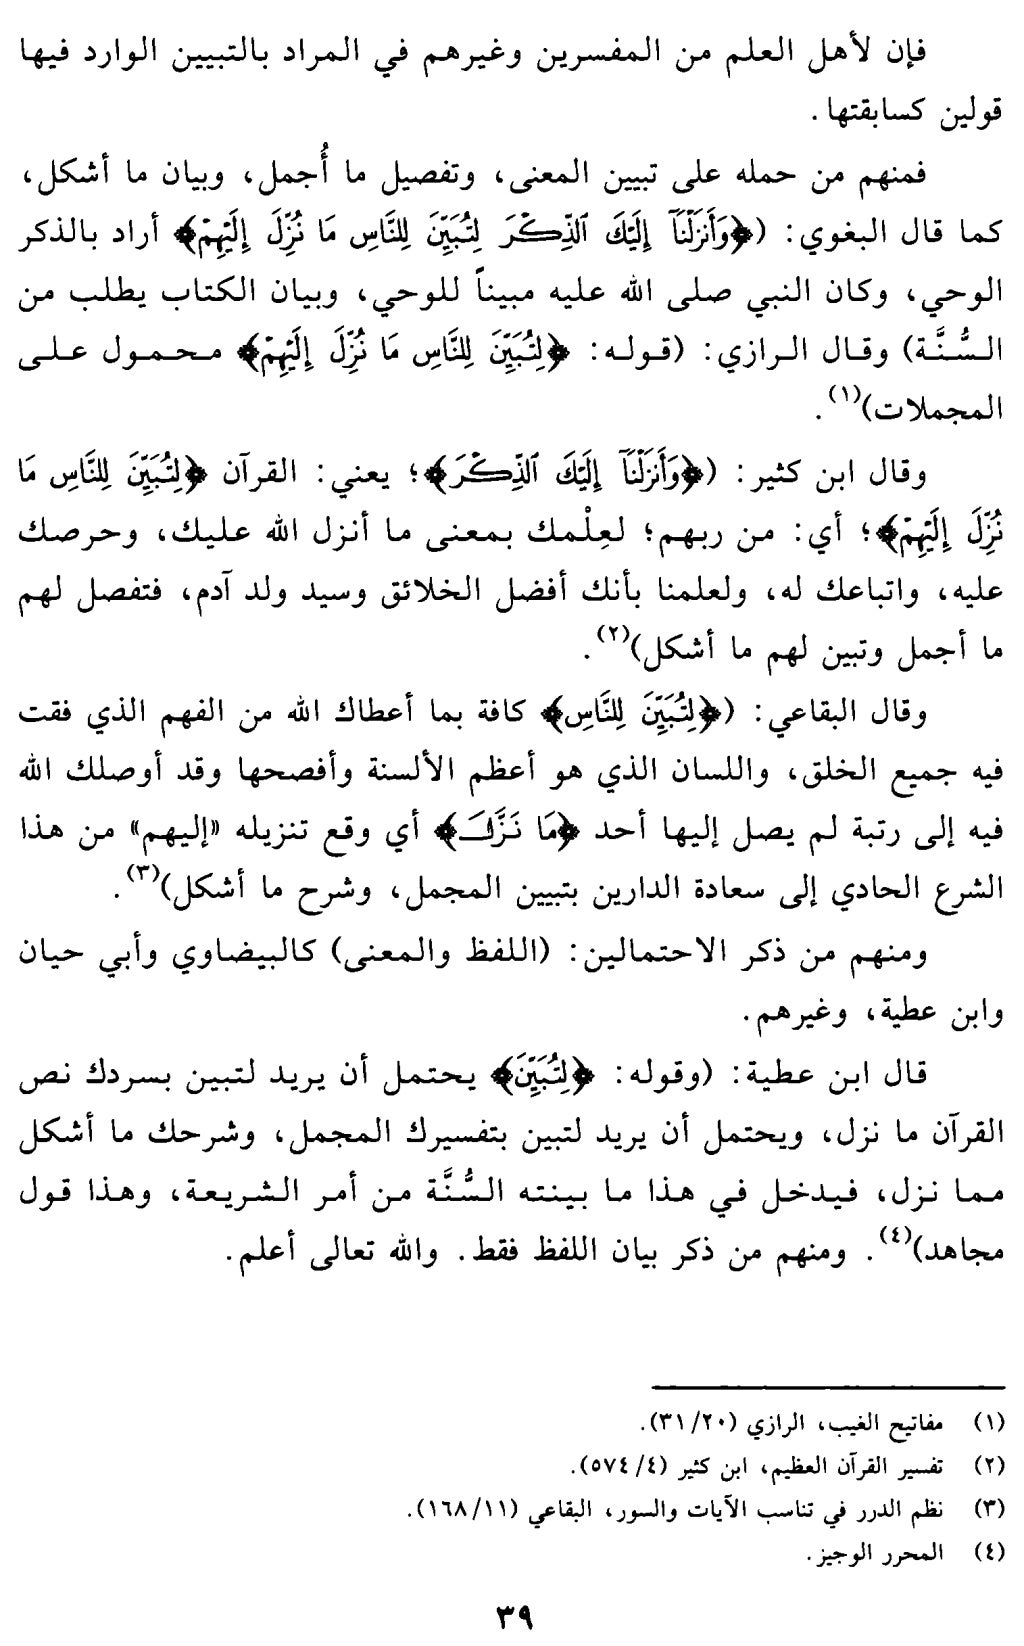 فإن لأهل العلم من المفسرين وغيرهم في المراد بالتبيين الوارد فيها
قولين كسابقتها.
فمنهم من حمله على تبيين المعنى، وتفصيل ما أُجمل، وبيان ما أشكل،
كما قال البغوي: (﴿وَأَنزَلْنَآ إِلَيْكَ ٱلذِّكْرَ لِتُبَيِّنَ لِلنَّاسِ مَا نُزِّلَ إِلَيْهِمْ﴾ أراد بالذكر
الوحي، وكان النبي صلى الله عليه مبيناً للوحي، وبيان الكتاب يطلب من
السُّنَّة) وقال الرازي: (قوله: ﴿لِتُبَيِّنَ لِلنَّاسِ مَا نُزِّلَ إِلَيْهِمْ﴾ محمول على
المجملات)(١).
وقال ابن كثير: (﴿وَأَنزَلْنَآ إِلَيْكَ ٱلذِّكْرَ﴾؛ يعني: القرآن ﴿لِتُبَيِّنَ لِلنَّاسِ مَا
نُزِّلَ إِلَيْهِمْ﴾؛ أي: من ربهم؛ لعِلْمك بمعنى ما أنزل الله عليك، وحرصك
عليه، واتباعك له، ولعلمنا بأنك أفضل الخلائق وسيد ولد آدم، فتفصل لهم
ما أجمل وتبين لهم ما أشكل)(٢).
وقال البقاعي: (﴿لِتُبَيِّنَ لِلنَّاسِ﴾ كافة بما أعطاك الله من الفهم الذي فقت
فيه جميع الخلق، واللسان الذي هو أعظم الألسنة وأفصحها وقد أوصلك الله
فيه إلى رتبة لم يصل إليها أحد ﴿مَا نَزَّلَ﴾ أي وقع تنزيله «إليهم» من هذا
الشرع الحادي إلى سعادة الدارين بتبيين المجمل، وشرح ما أشكل)(٣).
ومنهم من ذكر الاحتمالين: (اللفظ والمعنى) كالبيضاوي وأبي حيان
وابن عطية، وغيرهم.
قال ابن عطية: (وقوله: ﴿لِتُبَيِّنَ﴾ يحتمل أن يريد لتبين بسردك نص
القرآن ما نزل، ويحتمل أن يريد لتبين بتفسيرك المجمل، وشرحك ما أشكل
مما نزل، فيدخل في هذا ما بينته السُّنَّة من أمر الشريعة، وهذا قول
مجاهد)(٤). ومنهم من ذكر بيان اللفظ فقط. والله تعالى أعلم.
(١) مفاتيح الغيب، الرازي (٢٠/٣١).
(٢) تفسير القرآن العظيم، ابن كثير (٤/٥٧٤).
(٣) نظم الدرر في تناسب الآيات والسور، البقاعي (١١/١٦٨).
(٤) المحرر الوجيز.
٣٩